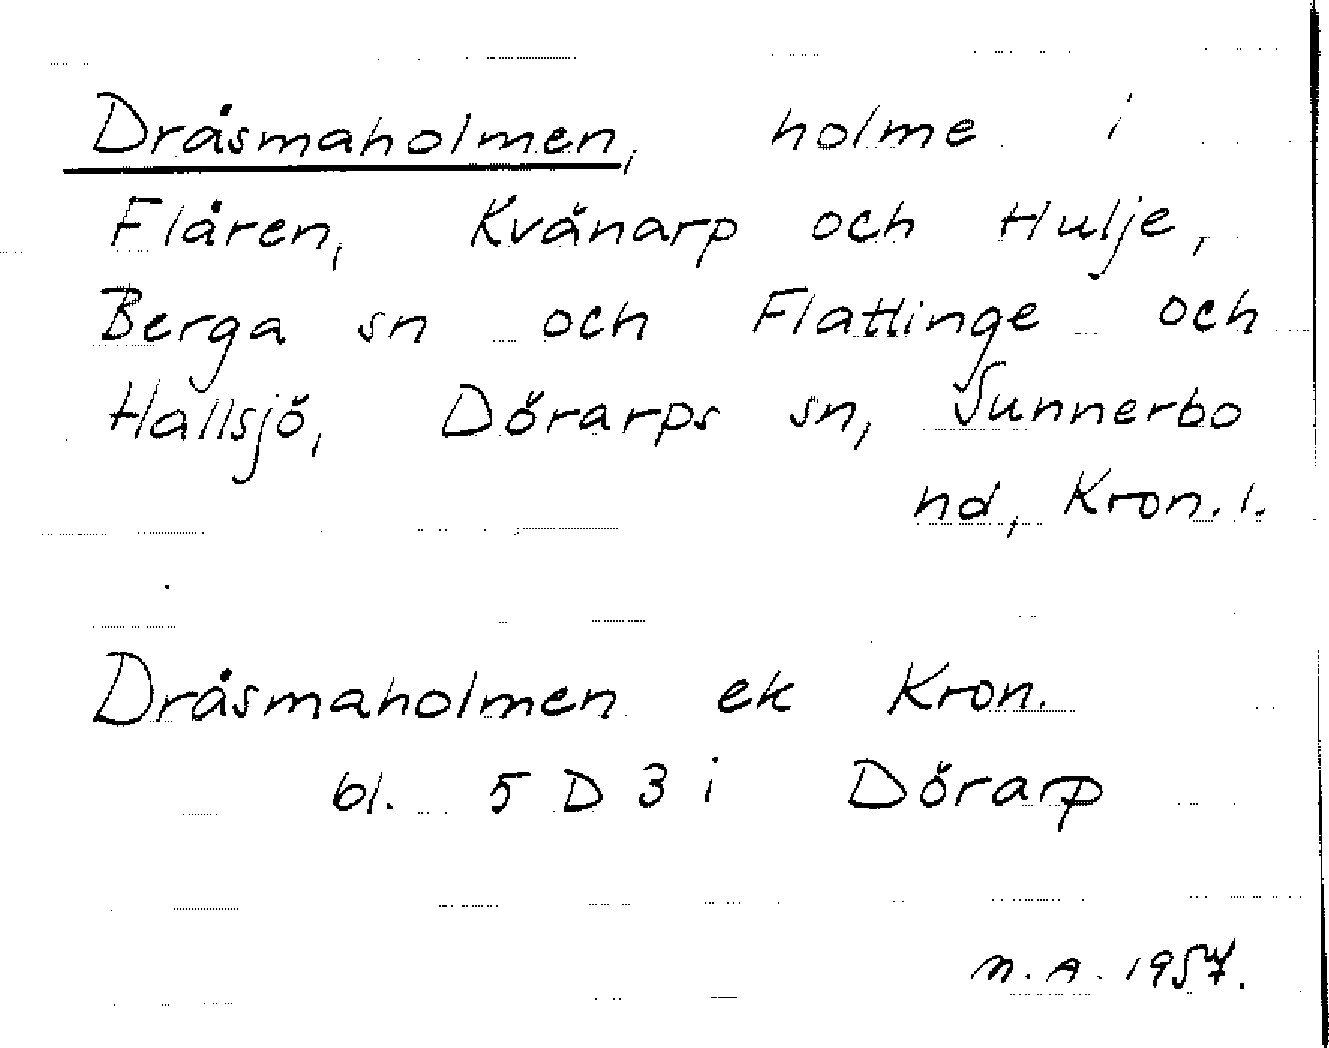 Dråsmaholmen, holme i
Flåren, Kvänarp och Hulje,
Berga sn och Flattinge och
Hallsjö, Dörarps sn, Sunnerbo
hd, Kron. l.
Dråsmaholmen ek Kron.
bl. 5 D 3 i Dörarp
N. A. 1957.